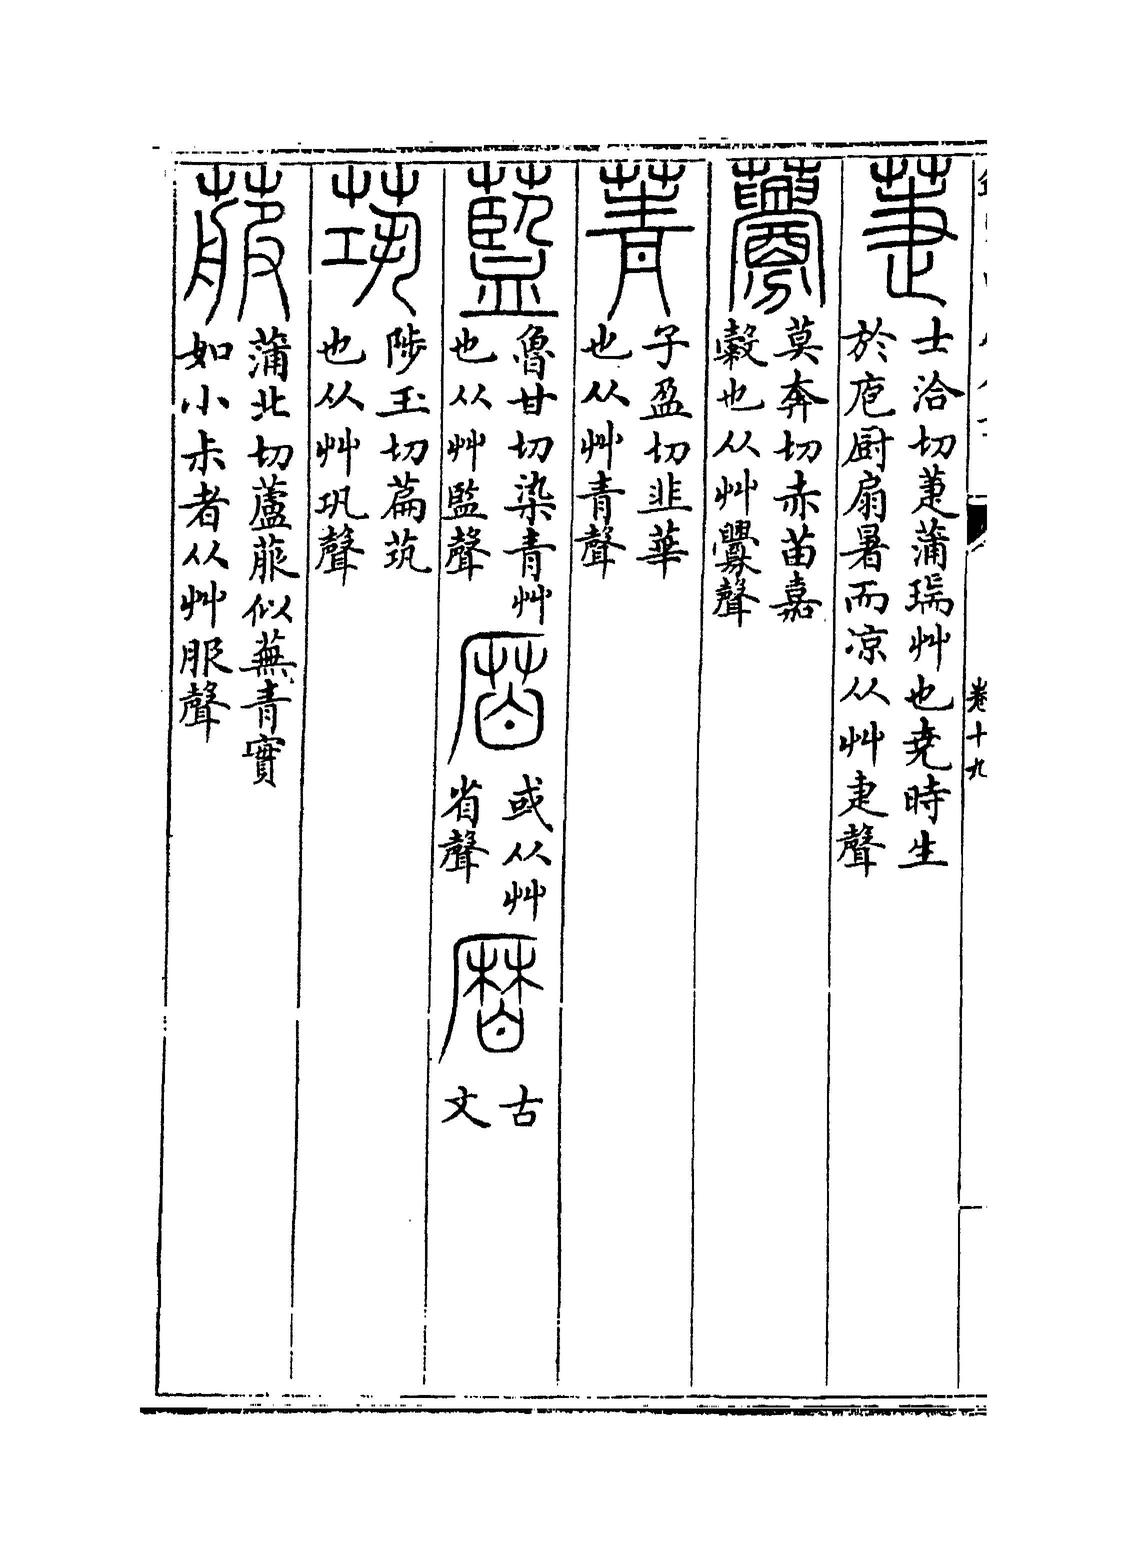 卷十九
萐
士洽切萐蒲瑞艸也堯時生
於庖厨扇暑而凉从艸疌聲
虋
莫奔切赤苗嘉
穀也从艸釁聲
菁
子盈切韭華
也从艸青聲
藍
魯甘切染青艸
也从艸監聲
或从艸
省聲
古
文
䇠
陟玉切萹茿
也从艸巩聲
菔
蒲北切蘆菔似蕪青實
如小尗者从艸服聲